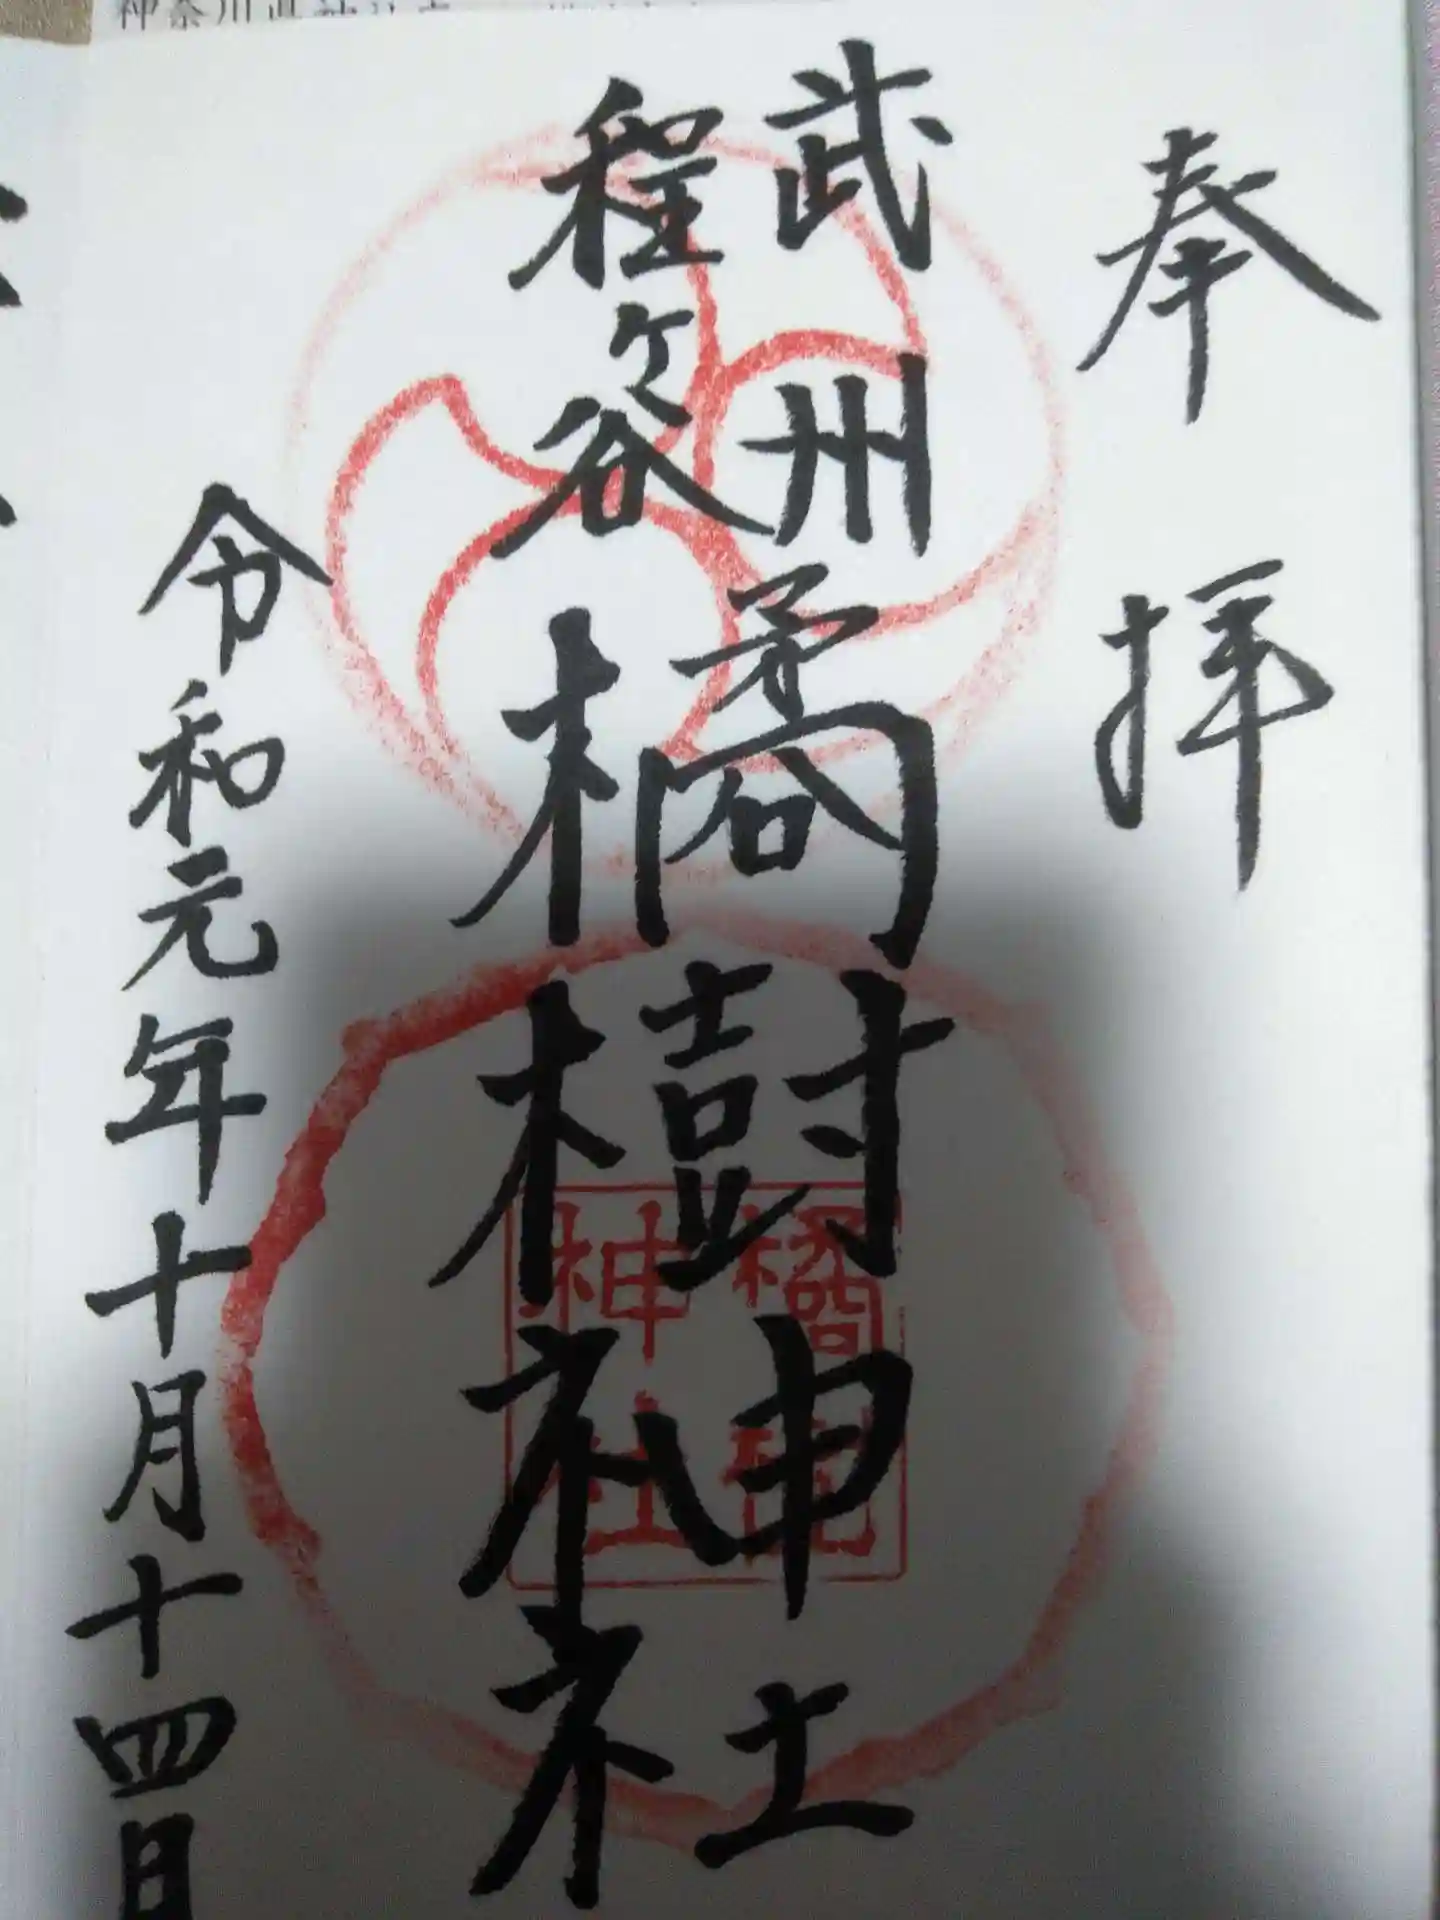 奉拝
武州
程ヶ谷
橘樹神社
橘樹
神社
令和元年十月十四日